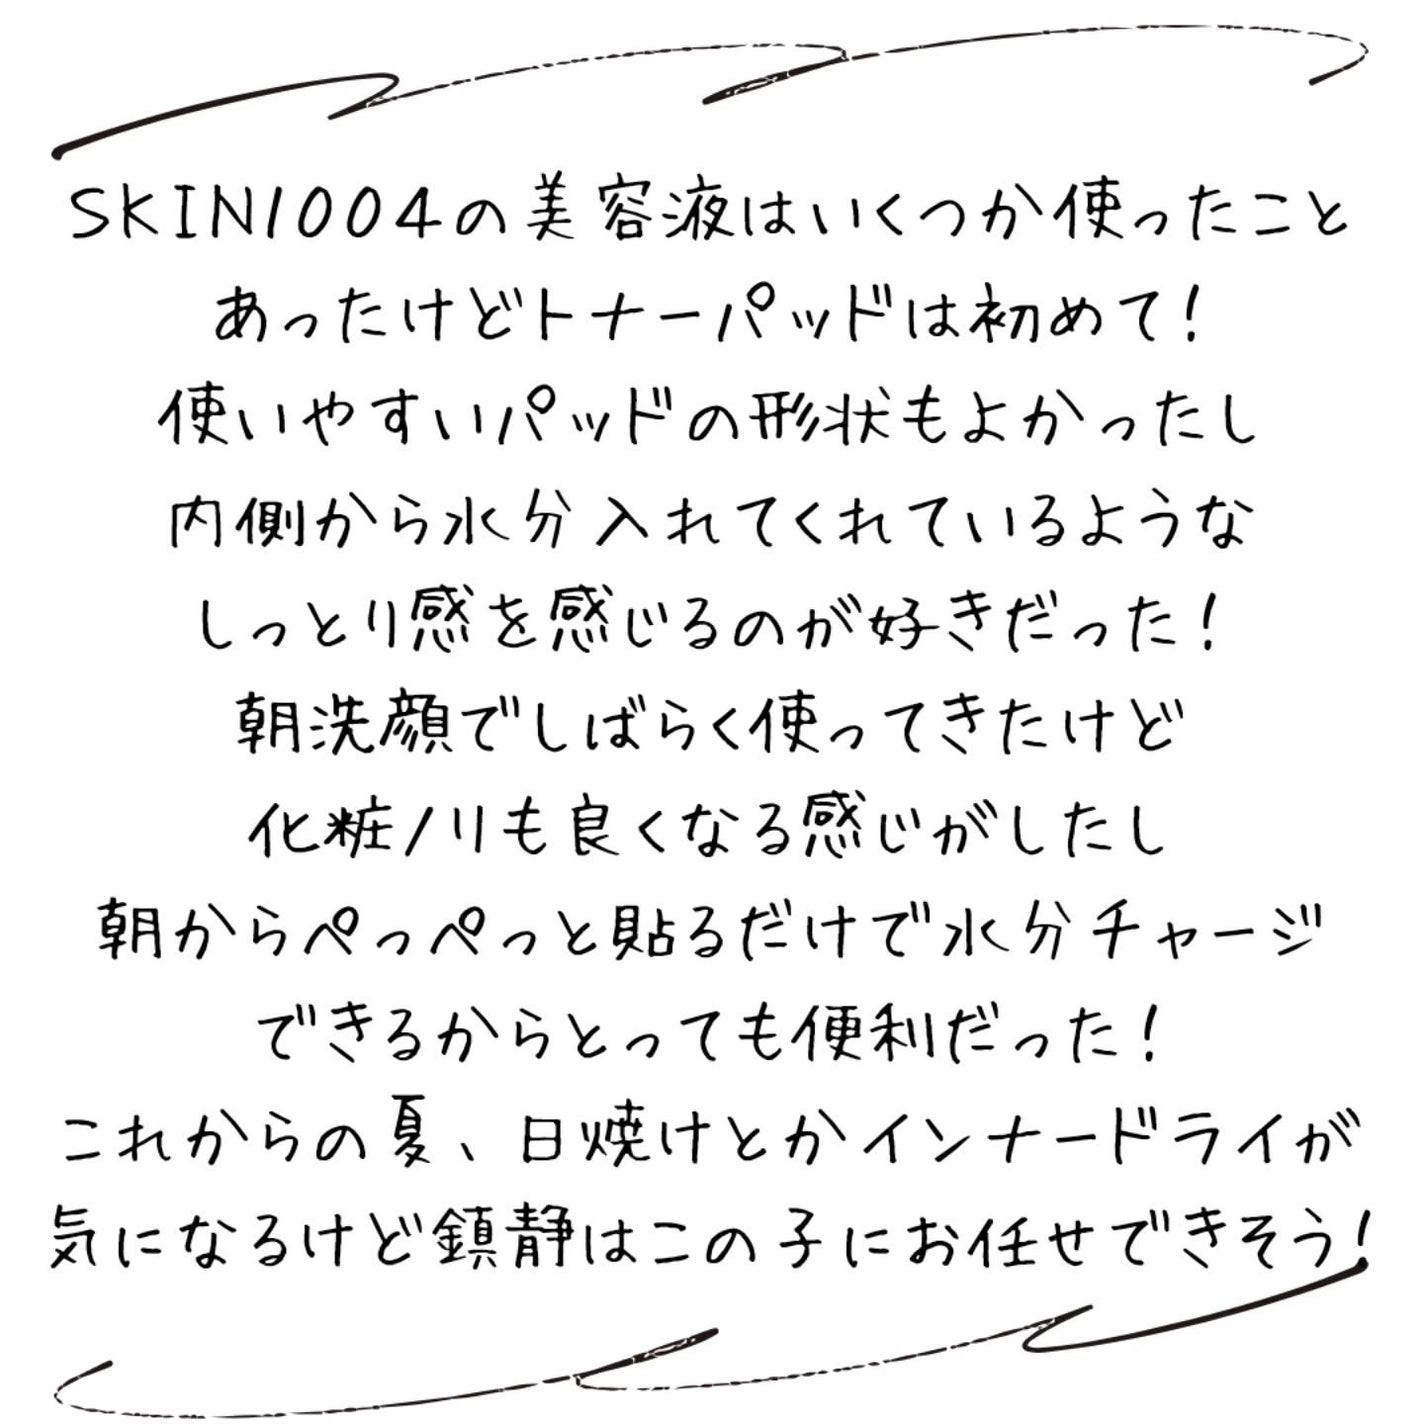 SKIN1004の美容液はいくつか使ったこと
あったけどトナーパッドは初めて！
使いやすいパッドの形状もよかったし
内側から水分入れてくれているような
しっとり感を感じるのが好きだった！
朝洗顔でしばらく使ってきたけど
化粧ノリも良くなる感じがしたし
朝からぺっぺっと貼るだけで水分チャージ
できるからとっても便利だった！
これからの夏、日焼けとかインナードライが
気になるけど鎮静はこの子にお任せできそう！